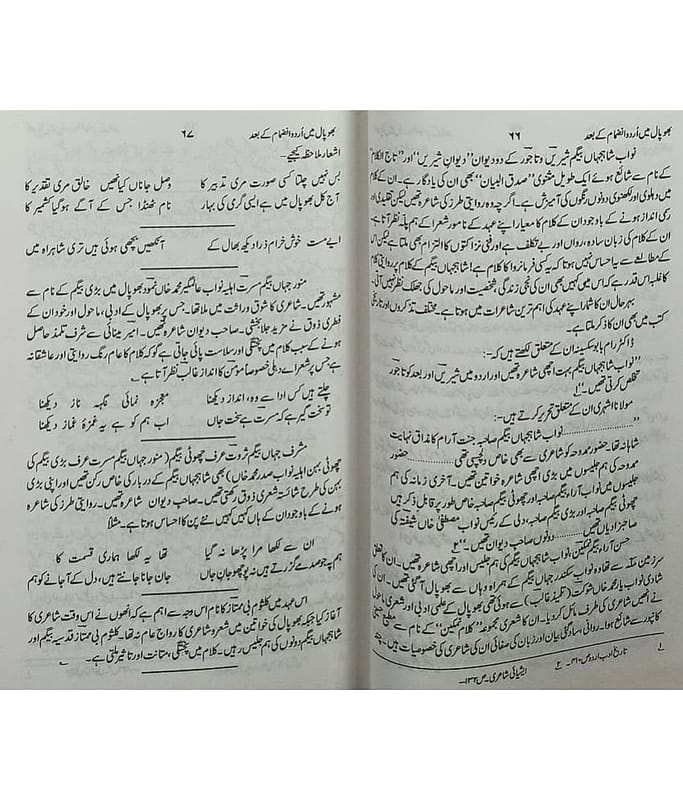 بھوپال میں اُردو انضمام کے بعد ۶۶
نواب شاہجہاں بیگم شیریں و تاجور کے دو دیوان ”دیوانِ شیریں“ اور ”تاج الکلام“
کے نام سے شائع ہوئے ایک طویل مثنوی ”صدق البیان“ بھی ان کی یادگار ہے۔ ان کے کلام
میں دہلوی اور لکھنوی دونوں رنگوں کی آمیزش ہے۔ اگرچہ وہ روایتی طرز کی شاعرہ تھیں لیکن تقلیدی اور
رسمی انداز ہونے کے باوجود ان کے کلام کا معیار اپنے عہد کے نامور شعرا کے ہم پلہ نظر آتا ہے۔
ان کے کلام کی زبان سادہ، رواں اور بے تکلف ہے اور فنی نزاکتوں کا التزام بھی ملتا ہے لیکن اس
کے مطالعے سے یہ احساس نہیں ہوتا کہ یہ کسی فرمانروا کا کلام ہے! شاہجہاں بیگم کے کلام پر روایتی کلام
کا غلبہ اس قدر ہے کہ اس میں کہیں بھی ان کی نجی زندگی، شخصیت اور ماحول کی جھلک نظر نہیں آتی۔
بہرحال ان کا شمار اپنے عہد کی اہم ترین شاعرات میں ہوتا ہے۔ مختلف تذکروں اور تاریخی
کتب میں بھی ان کا ذکر ملتا ہے۔
ڈاکٹر رام بابو سکسینہ ان کے متعلق لکھتے ہیں کہ:۔
”نواب شاہجہاں بیگم بہت اچھی شاعرہ تھیں اور اردو میں شیریں اور بعد کو تاجور
تخلص کرتی تھیں۔“ ۱
مولانا اشہری ان کے متعلق تحریر کرتے ہیں:۔
”..........نواب شاہجہاں بیگم صاحبہ جنت آرام کا مذاق نہایت
شاہانہ تھا۔ حضور ممدوحہ کو شاعری سے بھی خاص دلچسپی تھی .......... حضور
ممدوحہ کی ہم جلیسوں میں بڑی اچھی شاعرہ خواتین تھیں۔ آخری زمانہ کی ہم
جلیسوں میں نواب آرا بیگم صاحبہ اور چھوٹی بیگم صاحبہ خاص طور پر قابل ذکر ہیں
چھوٹی بیگم صاحبہ اور بڑی بیگم صاحبہ، دلی کے رئیس نواب مصطفیٰ خاں شیفتہ کی
صاحبزادیاں تھیں..........دونوں صاحب دیوان تھیں۔“ ۲
حسن آراء بیگم تمکین، نواب شاہجہاں بیگم کی ہم جلیس اور اچھی شاعرہ تھیں۔ ان کا تعلق
سرزمین سے تھا وہ نواب سکندر جہاں بیگم کے ہمراہ وہاں سے بھوپال آگئی تھیں۔ ان کی
شادی نواب یار محمد خاں شوکت (تلمیذ غالب) سے ہوئی تھی بھوپال کے علمی و ادبی اور شعری ماحول
نے انھیں شاعری کی طرف مائل کر دیا۔ ان کا شعری مجموعہ ”کلام تمکین“ کے نام سے مطبع
کانپور سے شائع ہوا۔ روانی، سادگی بیان اور زبان کی صفائی ان کی شاعری کی خصوصیات ہیں۔ چند
۱ تاریخ ادب اردو ص ۴۱۰۔ ۲ ایشیائی شاعری۔ ص ۱۳۲۔
بھوپال میں اُردو انضمام کے بعد ۶۷
اشعار ملاحظہ کیجیے۔
بس نہیں چلتا کسی صورت مری تدبیر کا وصل جاناں کیا نہیں خالق مری تقدیر کا
آج کل بھوپال میں ہے ایسی گرمی کی بہار نام ٹھنڈا جس کے آگے ہوگیا کشمیر کا
ایسے مست خوش خرام ذرا دیکھ بھال کے آنکھیں بچھی ہوئی ہیں تری شاہراہ میں
منور جہاں بیگم مسرت اہلیہ نواب عالمگیر محمد خاں نمود بھوپال میں بڑی بیگم کے نام سے
مشہور تھیں۔ شاعری کا شوق وراثت میں ملا تھا۔ جس پر بھوپال کے ادبی، ماحول اور خود ان کے
فطری ذوق نے مزید جلا بخشی۔ صاحب دیوان شاعرہ تھیں۔ امیر مینائی سے شرف تلمذ حاصل
ہونے کے سبب کلام میں پختگی اور سلاست پائی جاتی ہے گو کہ کلام کا عام رنگ روایتی اور عاشقانہ
ہے جس پر شعرائے دہلی خصوصاً مومن کا انداز غالب نظر آتا ہے۔
چلتے ہیں کس ادا سے وہ، انداز دیکھنا معجزہ نمائی نگہہ ناز دیکھنا
تو سخت گیر ہے کہ مسرت ہے سخت جاں اب ہم کو ہے یہ غمزۂ غماز دیکھنا
مشرف جہاں بیگم ثروت عرف چھوٹی بیگم (منور جہاں بیگم مسرت عرف بڑی بیگم کی
چھوٹی بہن اہلیہ نواب صدر محمد خاں) بھی شاہجہاں بیگم کے دربار کی خاص رکن تھیں اور اپنی بڑی
بہن کی طرح شائستہ شعری ذوق رکھتی تھیں۔ صاحب دیوان شاعرہ تھیں۔ روایتی طرز کی شاعرہ
ہونے کے باوجود ان کے ہاں کہیں کہیں نئے پن کا احساس ہوتا ہے۔ مثلاً
ان سے لکھا مرا پڑھا نہ گیا تھا یہ لکھا ہماری قسمت کا
ہم پہ جو صدمے گزرتے ہیں نہ پوچھو جانِ جاں جان جانا جانتے ہیں، دل کے آجانے کو ہم
اس عہد میں کلثوم بی ممتاز کا نام اس وجہ سے اہم ہے کہ انھوں نے اس وقت شاعری کا
آغاز کیا جبکہ بھوپال کی خواتین میں شعر و شاعری کا رواج عام نہ تھا۔ کلثوم بی ممتاز قدسیہ بیگم اور
شاہجہاں بیگم دونوں کی ہم جلیس رہیں۔ کلام میں پختگی، متانت اور تاثیر ملتی ہے۔